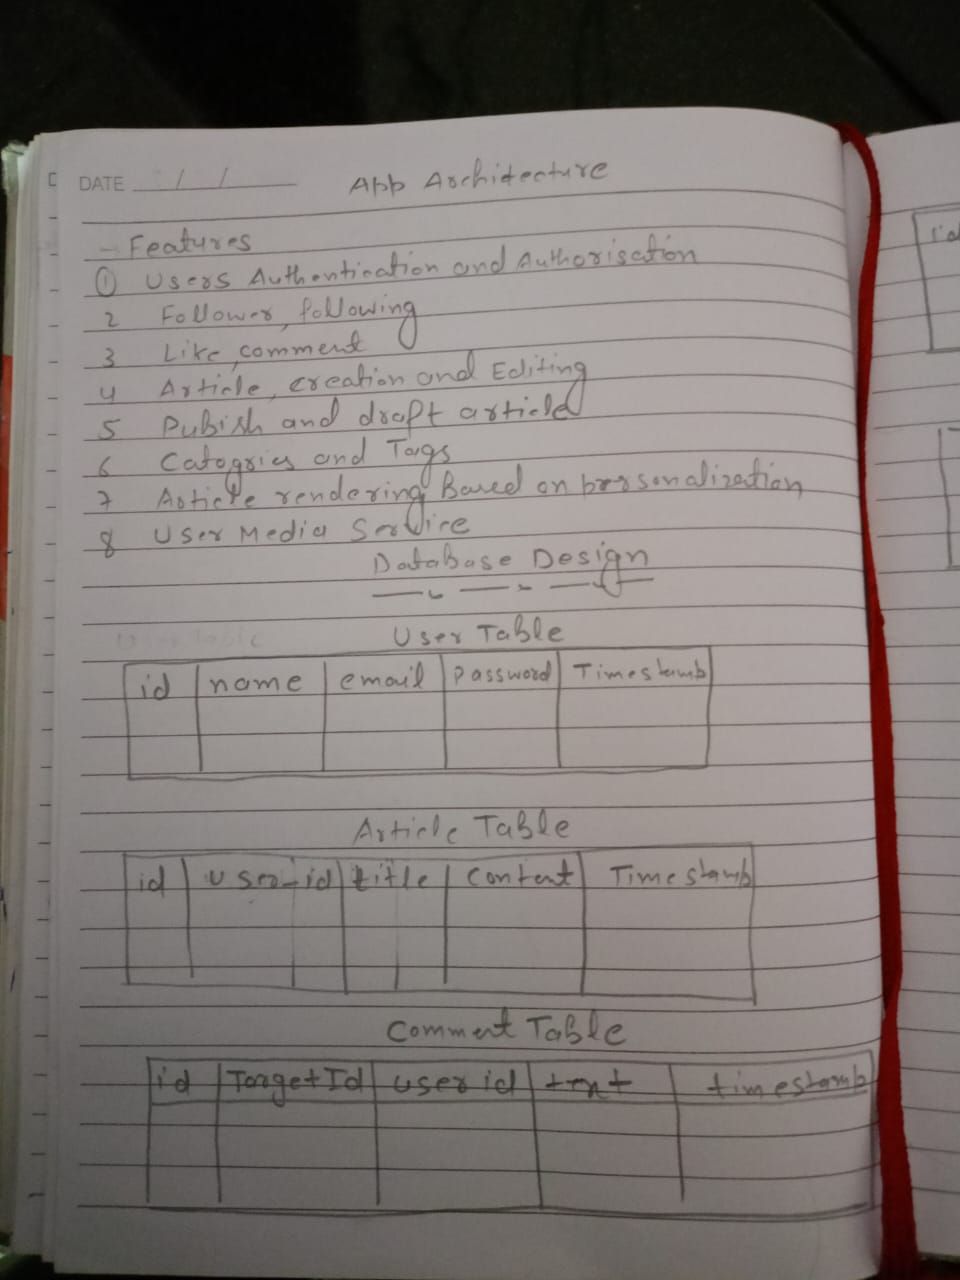 DATE / / App Architecture
- Features
① Users Authentication and Authorisation
2 Follower, following
3 Like, comment
4 Article, creation and Editing
5 Pubish and draft article
6 Catogries and Tags
7 Article rendering Based on personalization
8 User Media Service
Database Design
User Table
id name email Password Timestamb
Article Table
id user-id title Content Timestamb
Comment Table
id Target Id user id text timestamb